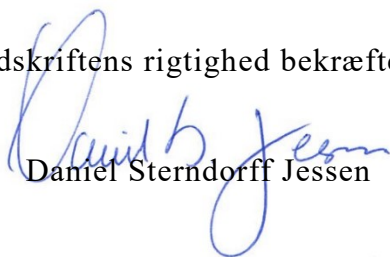 dskriftens rigtighed bekræfte
David S Jessen
Daniel Sterndorff Jessen